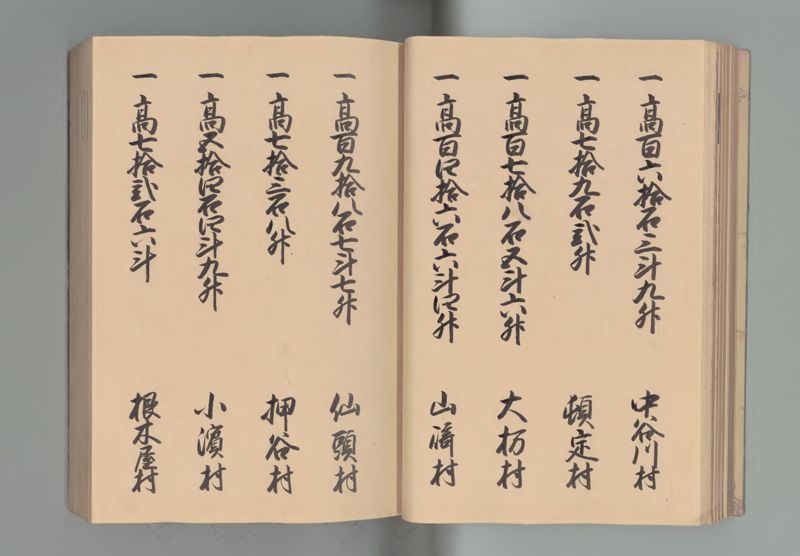 一 高百六拾石三斗九升 中谷川村
一 高七拾九石弐升 頓定村
一 高百七拾八石五斗六升 大杤村
一 高百四拾六石六斗四升 山﨑村
一 高百九拾八石七斗七升 仙頭村
一 高七拾三石八升 押谷村
一 高五拾四石四斗九升 小濱村
一 高七拾弐石六斗 根木屋村